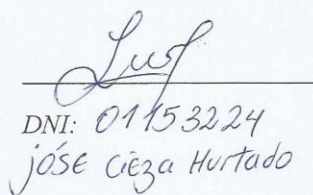 DNI: 01153224
jóSE Cieza Hurtado